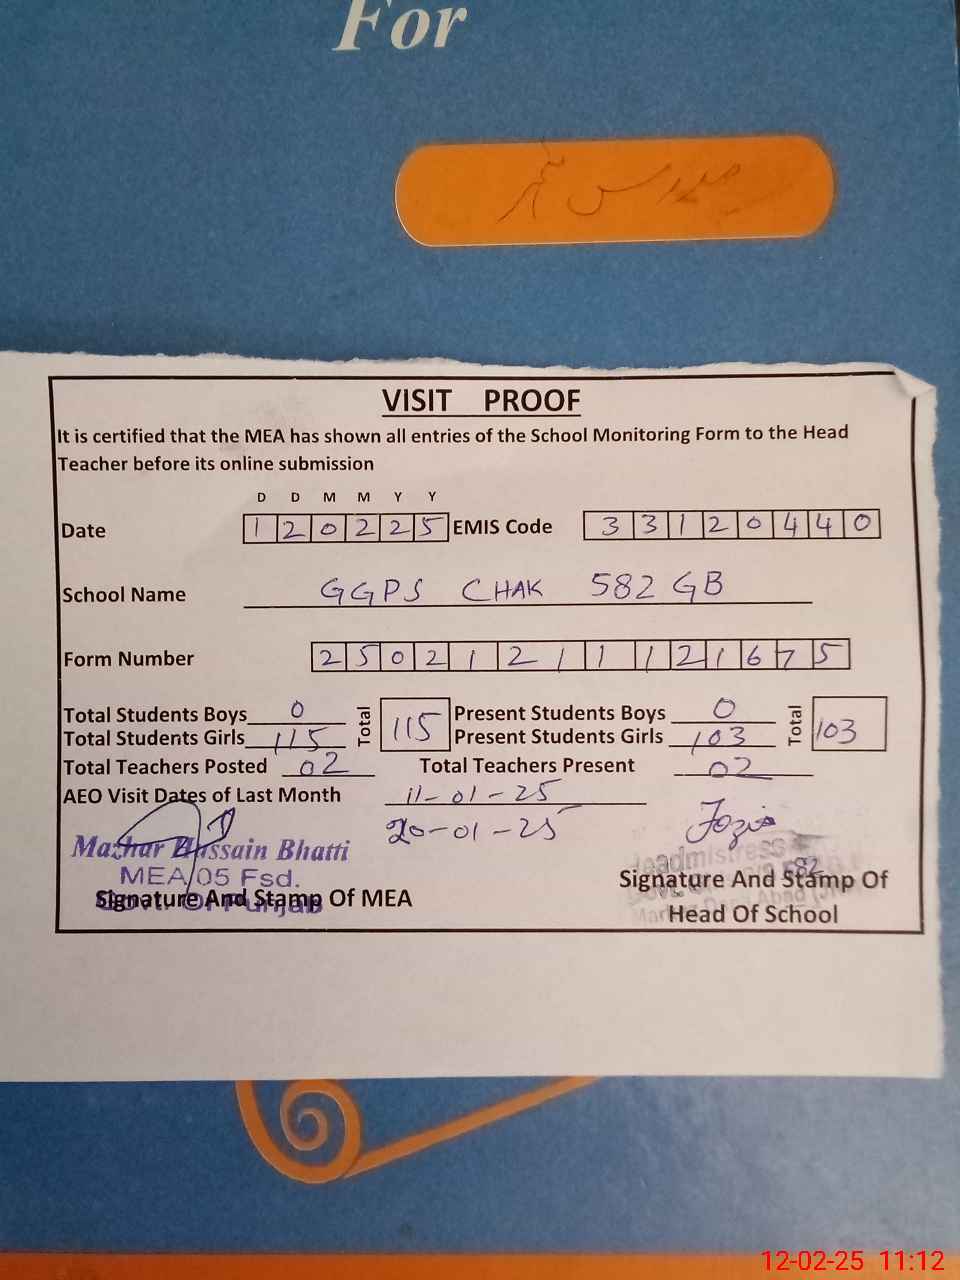 For
VISIT PROOF
It is certified that the MEA has shown all entries of the School Monitoring Form to the Head
Teacher before its online submission
D D M M Y Y
Date 1 2 0 2 2 5 EMIS Code 3 3 1 2 0 4 4 0
School Name GGPS CHAK 582 GB
Form Number 2 5 0 2 1 2 1 1 1 2 1 6 7 5
Total Students Boys 0 Total 115 Present Students Boys 0 Total 103
Total Students Girls 115 Present Students Girls 103
Total Teachers Posted 02 Total Teachers Present 02
AEO Visit Dates of Last Month 11-01-25
20-01-25 Fozia
Mazhar Hussain Bhatti
MEA/05 Fsd.
Govt. Of Punjab
Signature And Stamp Of MEA
Headmistress
582
Signature And Stamp Of
Head Of School
12-02-25 11:12